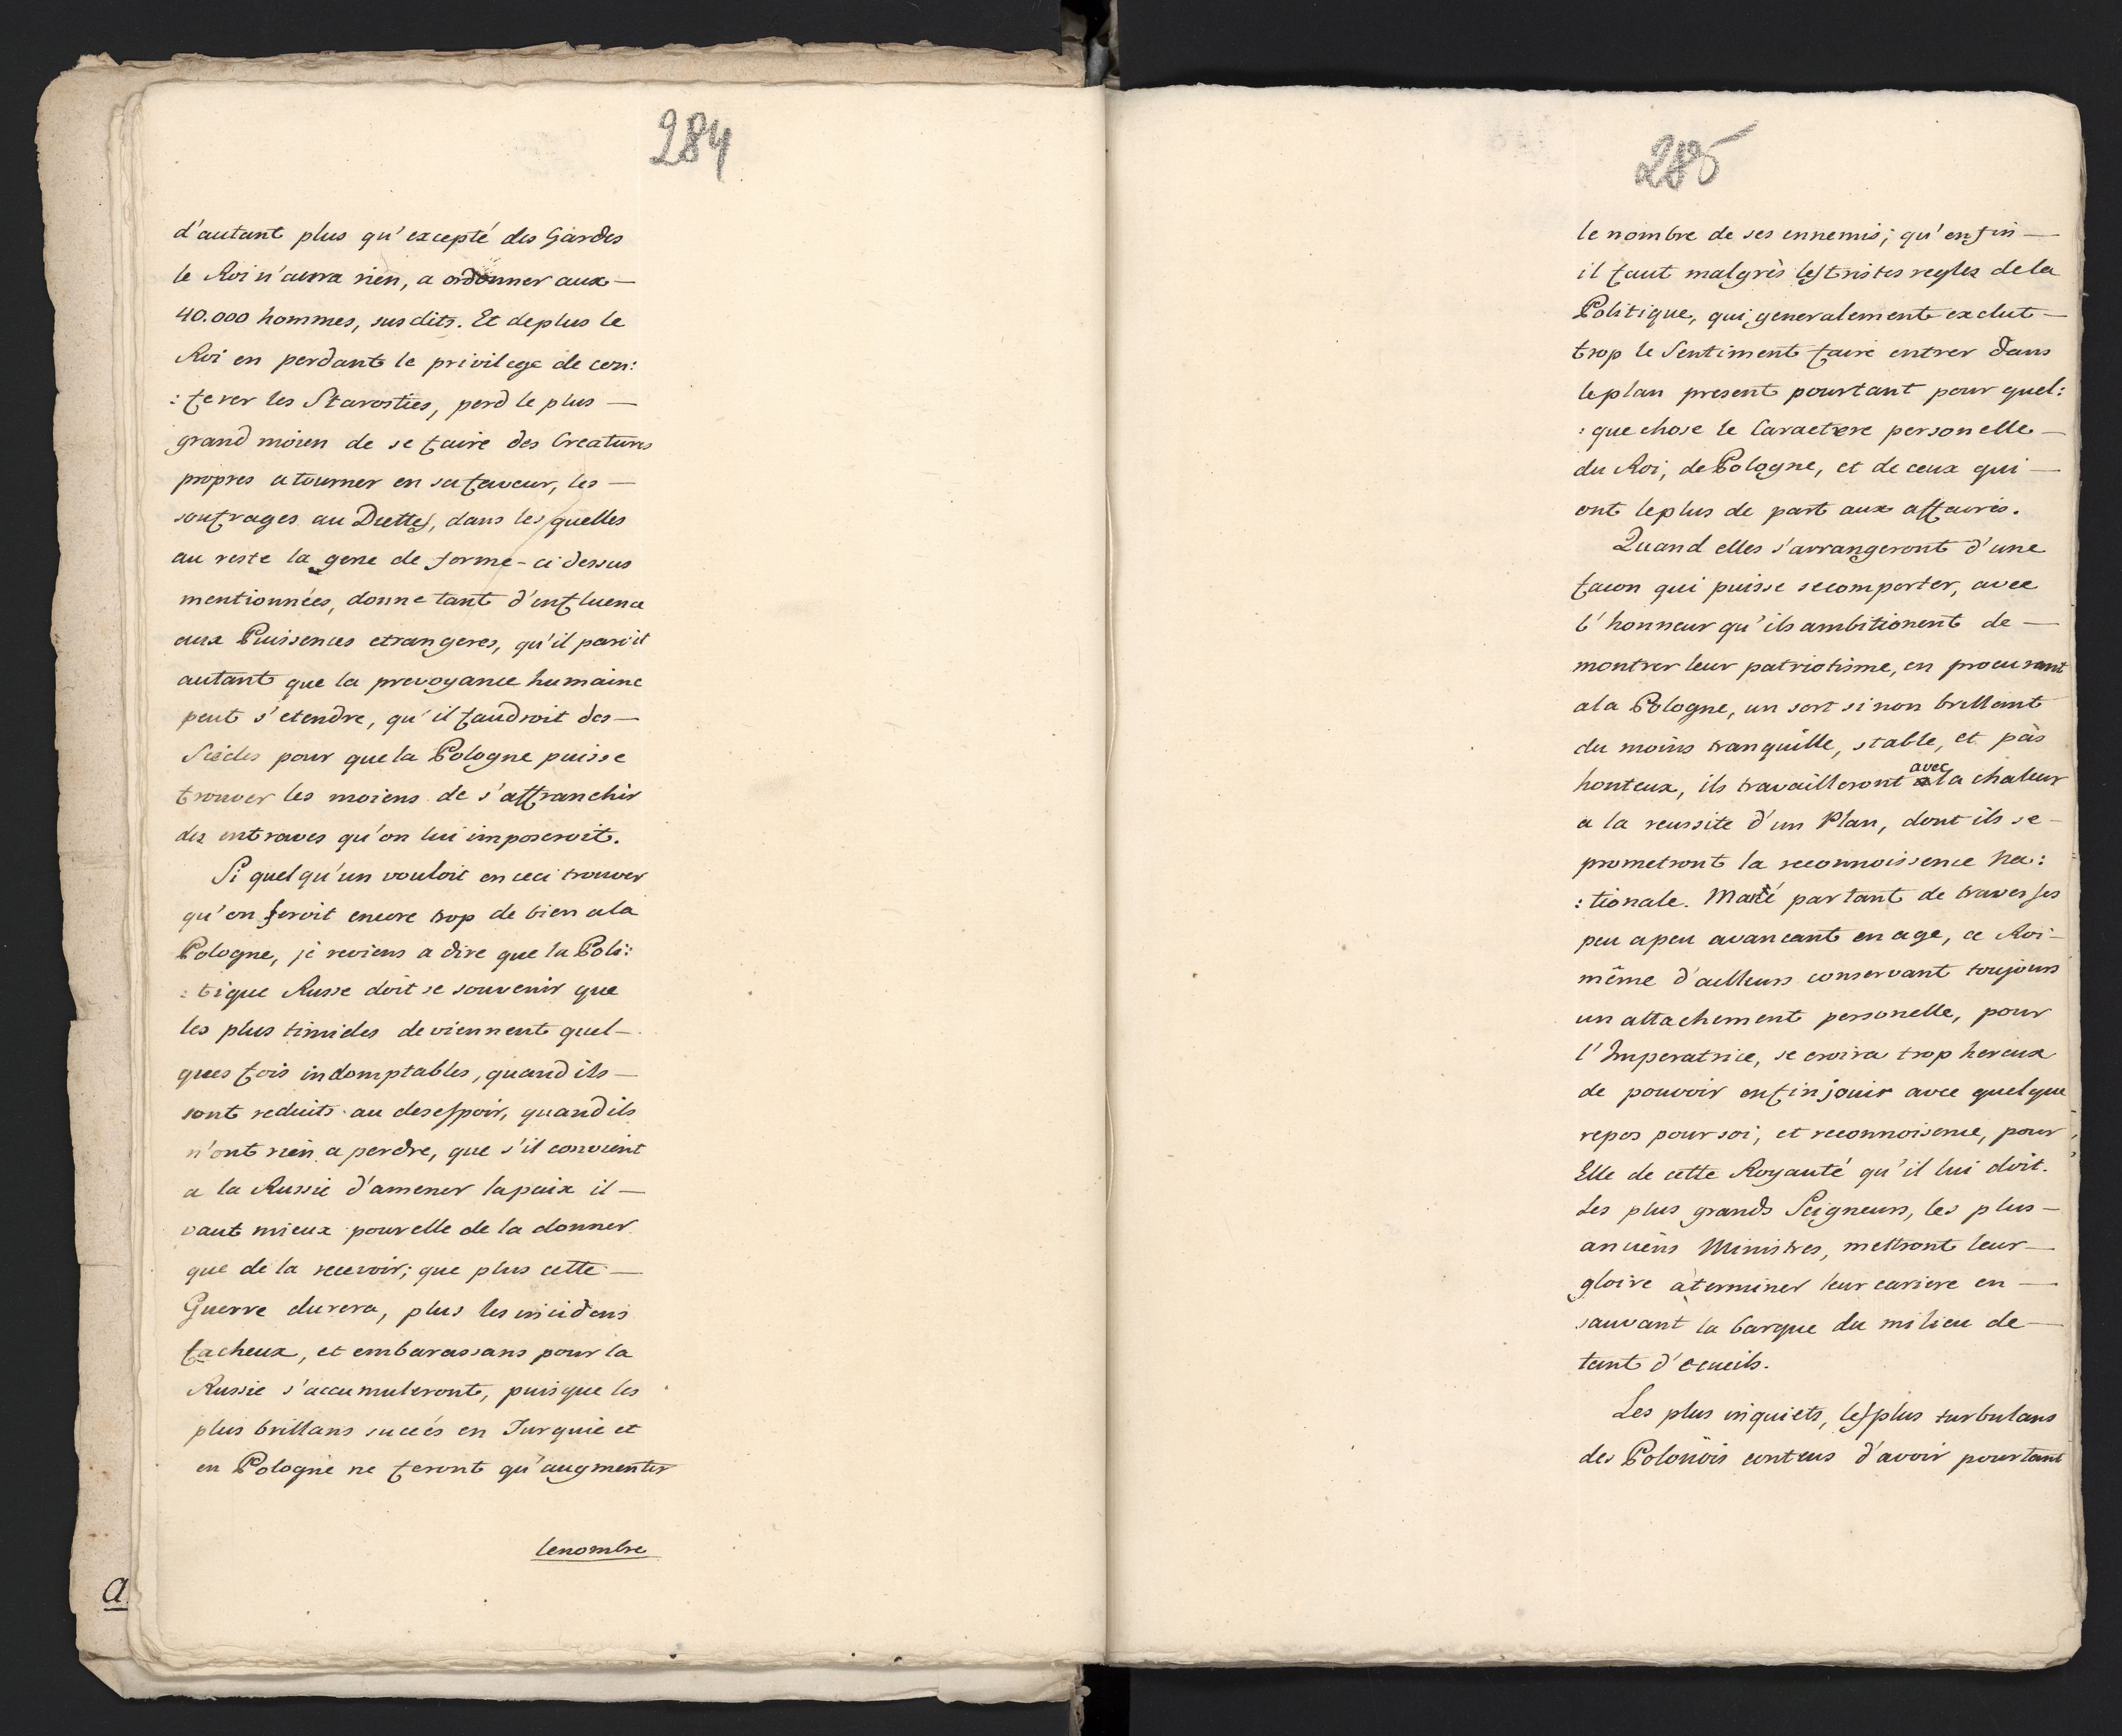 284
d'autant plus qu'excepté des Gardes
le Roi n'aura rien, a ordonner aux —
40.000 hommes, susdits. Et deplus le
Roi en perdant le privilege de con:
: ferer les Starosties, perd le plus —
grand moien de se faire des Creatures
propres a tourner en sa faveur, les —
soufrages au Diettes, dans les quelles
au reste la gene de forme - ci dessus
mentionnées, donne tant d'influence
aux Puissences etrangeres, qu'il paroit
autant que la prevoyance humaine
peut s'etendre, qu'il faudroit des —
Siécles pour que la Pologne puisse
trouver les moiens de s'affranchir
des entraves qu'on lui imposeroit.
Si quelqu'un vouloit en ceci trouver
qu'on feroit encore trop de bien a la
Pologne, je reviens a dire que la Poli:
: tique Russe doit se souvenir que
les plus timides deviennent quel —
ques fois indomptables, quand ils —
sont reduits au desespoir, quand ils
n'ont rien a perdre, que s'il convient
a la Russie d'amener la paix il —
vaut mieux pour elle de la donner
que de la recevoir; que plus cette —
Guerre durera, plus les incidens
facheux, et embarassans pour la
Russie s'accumuleront, puisque les
plus brillans succés en Turquie et
en Pologne ne feront qu'augmenter
lenombre
a
285
le nombre de ses ennemis; qu'enfin —
il faut malgrès les tristes regles dela
Politique, qui generalement exclut —
trop le Sentiment faire entrer dans
le plan present pourtant pour quel:
: que chose le Caractere personelle —
du Roi, de Pologne, et de ceux qui —
ont le plus de part aux affaires.
Quand elles s'arrangeront d'une
facon qui puisse se comporter, avec
l'honneur qu'ils ambitionent de —
montrer leur patriotisme, en procurant
a la Pologne, un sort si non brillant
du moins tranquille, stable, et pas
honteux, ils travailleront avec la chaleur
a la reussite d'un Plan, dont ils se —
prometront la reconnoissence Na:
: tionale. Maté par tant de traverses
peu a peu avancant en age, ce Roi —
même d'ailleurs conservant toujours
un attachement personelle, pour
l'Imperatrice, se croira trop hereux
de pouvoir enfin jouir avec quelque
repos pour soi, et reconnoisence, pour
Elle de cette Royauté qu'il lui doit.
Les plus grands Seigneurs, les plus —
anciens Ministres, mettront leur —
gloire à terminer leur cariere en —
sauvant la barque du milieu de —
tant d'ecueils.
Les plus inquiets, les plus turbulans
des Polonois contens d'avoir pourtant